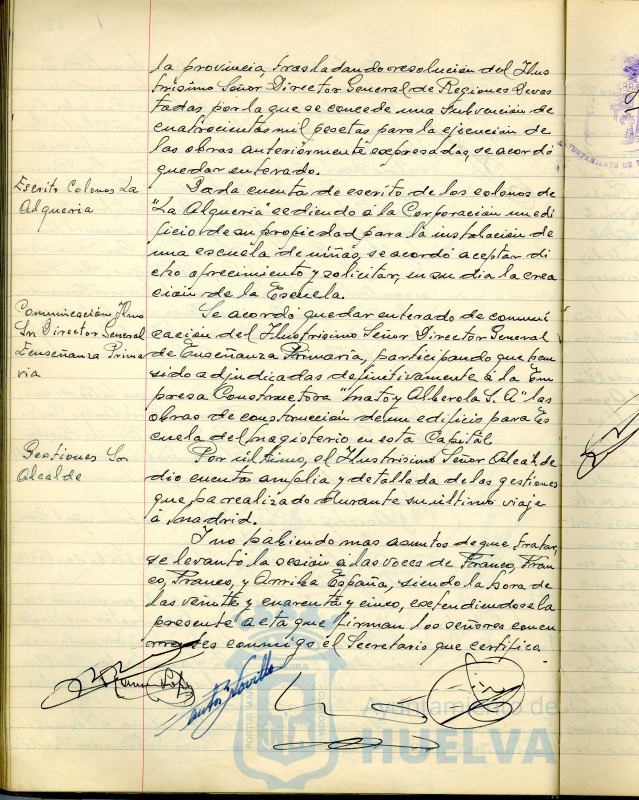 la provincia, trasladando resolución del Ilus
trísimo Señor Director General de Regiones Devas
tadas por la que se concede una subvención de
cuatrocientas mil pesetas para la ejecución de
las obras anteriormente expresadas, se acordó
quedar enterado.
Escrito Colonos La
Alquería
Dada cuenta de escrito de los colonos de
"La Alquería" cediendo á la Corporación un edi
ficio de su propiedad para la instalación de
una escuela de niñas, se acordó aceptar di
cho ofrecimiento y solicitar, en su día la crea
ción de la Escuela.
Comunicación Ilmo
Sr. Director General
Enseñanza Prima
ria
Se acordó quedar enterado de comuni
cación del Ilustrísimo Señor Director General
de Enseñanza Primaria, participando que han
sido adjudicadas definitivamente á la Em
presa Constructora "Mato y Alberola S.A" las
obras de construcción de un edificio para Es
cuela del Magisterio en esta Capital.
Gestiones Sr
Alcalde
Por último, el Ilustrísimo Señor Alcalde
dio cuenta amplia y detallada de las gestiones
que ha realizado durante su último viaje
á Madrid.
Y no habiendo mas asuntos de que tratar,
se levantó la sesión a las voces de Franco, Fran
co, Franco, y Arriba España, siendo la hora de
las veinte y cuarenta y cinco, extendiendose la
presente acta que firman los señores concu
rrentes conmigo el Secretario que certifico.
Ayuntamiento de
HUELVA